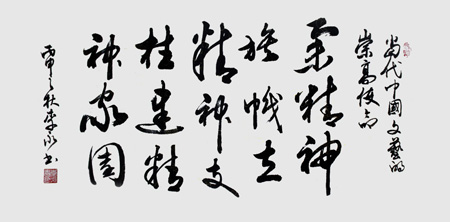 当代中國文藝的
崇高使命
举精神
旗帜立
精神支
柱建精
神家園
丙申之秋李